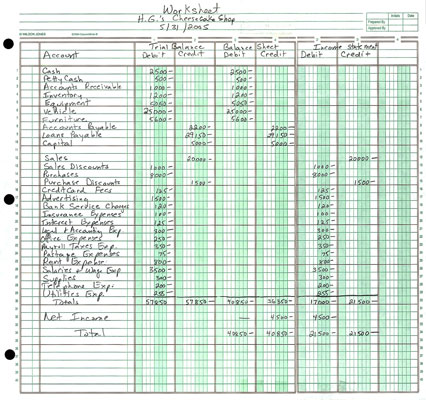 Worksheet
H.G.'s Cheesecake Shop
5/31/2005
Initials Date
Prepared By
Approved By
WILSON JONES
Trial Balance Balance Sheet Income Statement
Account Debit Credit Debit Credit Debit Credit
Cash 2500- 2500-
Petty Cash 500- 500-
Accounts Receivable 1200- 1200-
Inventory 1200- 1200-
Equipment 5050- 5050-
Vehicle 25000- 25000-
Furniture 5600- 5600-
Accounts Payable 2200- 2200-
Loans Payable 29150- 29150-
Capital 5000- 5000-
Sales 20000- 20000-
Sales Discounts 1000- 1000-
Purchases 8000- 8000-
Purchase Discounts 1500- 1500-
Credit Card Fees 125- 125-
Advertising 1500- 1500-
Bank Service Charges 120- 120-
Insurance Expenses 100- 100-
Interest Expenses 125- 125-
Legal & Accounting Exp 300- 300-
Office Expenses 350- 350-
Payroll Taxes Exp. 350- 350-
Postage Expenses 75- 75-
Rent Expense 800- 800-
Salaries & Wage Exp 3500- 3500-
Supplies 300- 300-
Telephone Exp. 200- 200-
Utilities Exp. 255- 255-
Totals 57850 57850- 40850- 36350- 17000- 21500-
Net Income — 4500- 4500-
Total 40850- 40850- 21500- 21500-